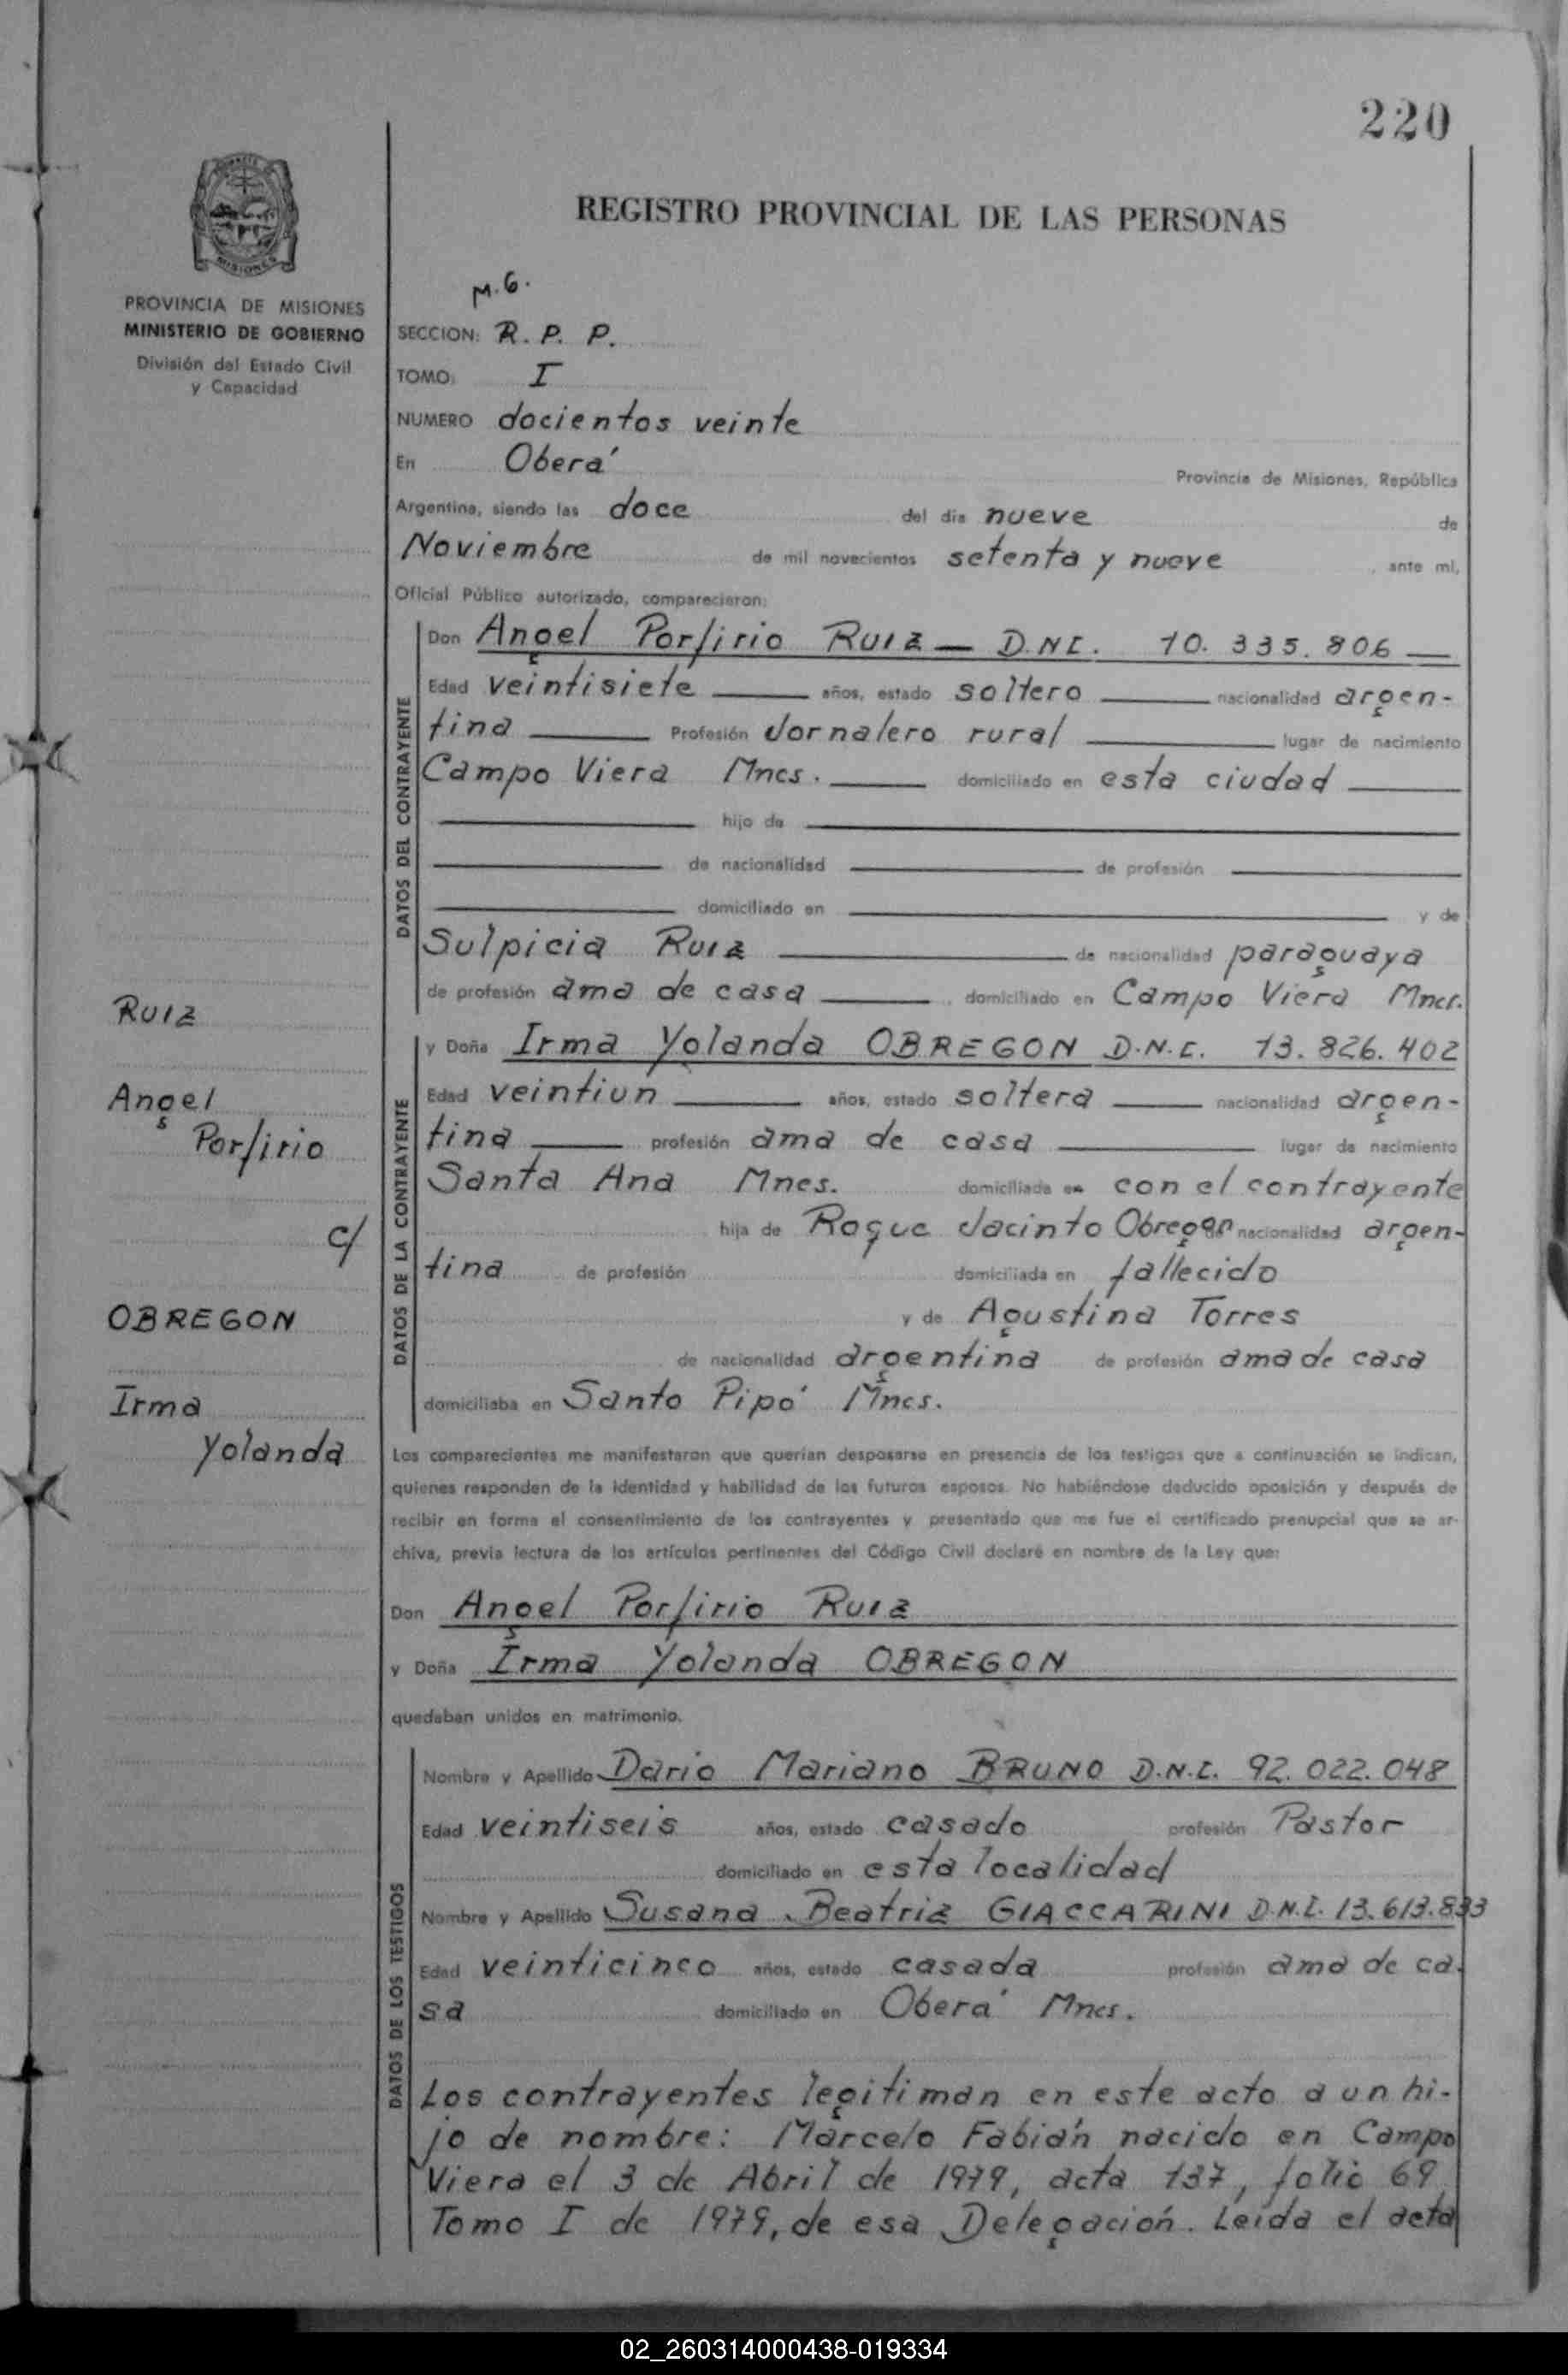 220
REGISTRO PROVINCIAL DE LAS PERSONAS
MISIONES
PROVINCIA DE MISIONES
MINISTERIO DE GOBIERNO
División del Estado Civil
y Capacidad
M.G.
SECCION: R. P. P.
TOMO: I
NUMERO docientos veinte
En Oberá Provincia de Misiones, República
Argentina, siendo las doce del día nueve de
Noviembre de mil novecientos setenta y nueve, ante mí,
Oficial Público autorizado, comparecieron:
DATOS DEL CONTRAYENTE
Don Angel Porfirio Ruiz — D.N.I. 10.335.806 —
Edad veintisiete años, estado soltero nacionalidad argen-
tina Profesión Jornalero rural lugar de nacimiento
Campo Viera Mnes. domiciliado en esta ciudad
hijo de
de nacionalidad de profesión
domiciliado en y de
Sulpicia Ruiz de nacionalidad paraguaya
de profesión ama de casa, domiciliado en Campo Viera Mnes.
DATOS DE LA CONTRAYENTE
y Doña Irma Yolanda OBREGON D.N.I. 13.826.402
Edad veintiun años, estado soltera nacionalidad argen-
tina profesión ama de casa lugar de nacimiento
Santa Ana Mnes. domiciliada en con el contrayente
hija de Roque Jacinto Obregon de nacionalidad argen-
tina de profesión domiciliada en fallecido
y de Agustina Torres
de nacionalidad argentina de profesión ama de casa
domiciliaba en Santo Pipó Mnes.
Ruiz
Angel
Porfirio
c/
OBREGON
Irma
Yolanda
Los comparecientes me manifestaron que querían desposarse en presencia de los testigos que a continuación se indican,
quienes responden de la identidad y habilidad de los futuros esposos. No habiéndose deducido oposición y después de
recibir en forma el consentimiento de los contrayentes y presentado que me fue el certificado prenupcial que se ar-
chiva, previa lectura de los artículos pertinentes del Código Civil declaré en nombre de la Ley que:
Don Angel Porfirio Ruiz
y Doña Irma Yolanda OBREGON
quedaban unidos en matrimonio.
DATOS DE LOS TESTIGOS
Nombre y Apellido Dario Mariano BRUNO D.N.I. 92.022.048
Edad veintiseis años, estado casado profesión Pastor
domiciliado en esta localidad
Nombre y Apellido Susana Beatriz GIACCARINI D.N.I. 13.613.833
Edad veinticinco años, estado casada profesión ama de ca-
sa domiciliado en Oberá Mnes.
Los contrayentes legitiman en este acto a un hi-
jo de nombre: Marcelo Fabián nacido en Campo
Viera el 3 de Abril de 1979, acta 137, folio 69
Tomo I de 1979, de esa Delegación. Leida el acta
02_260314000438-019334